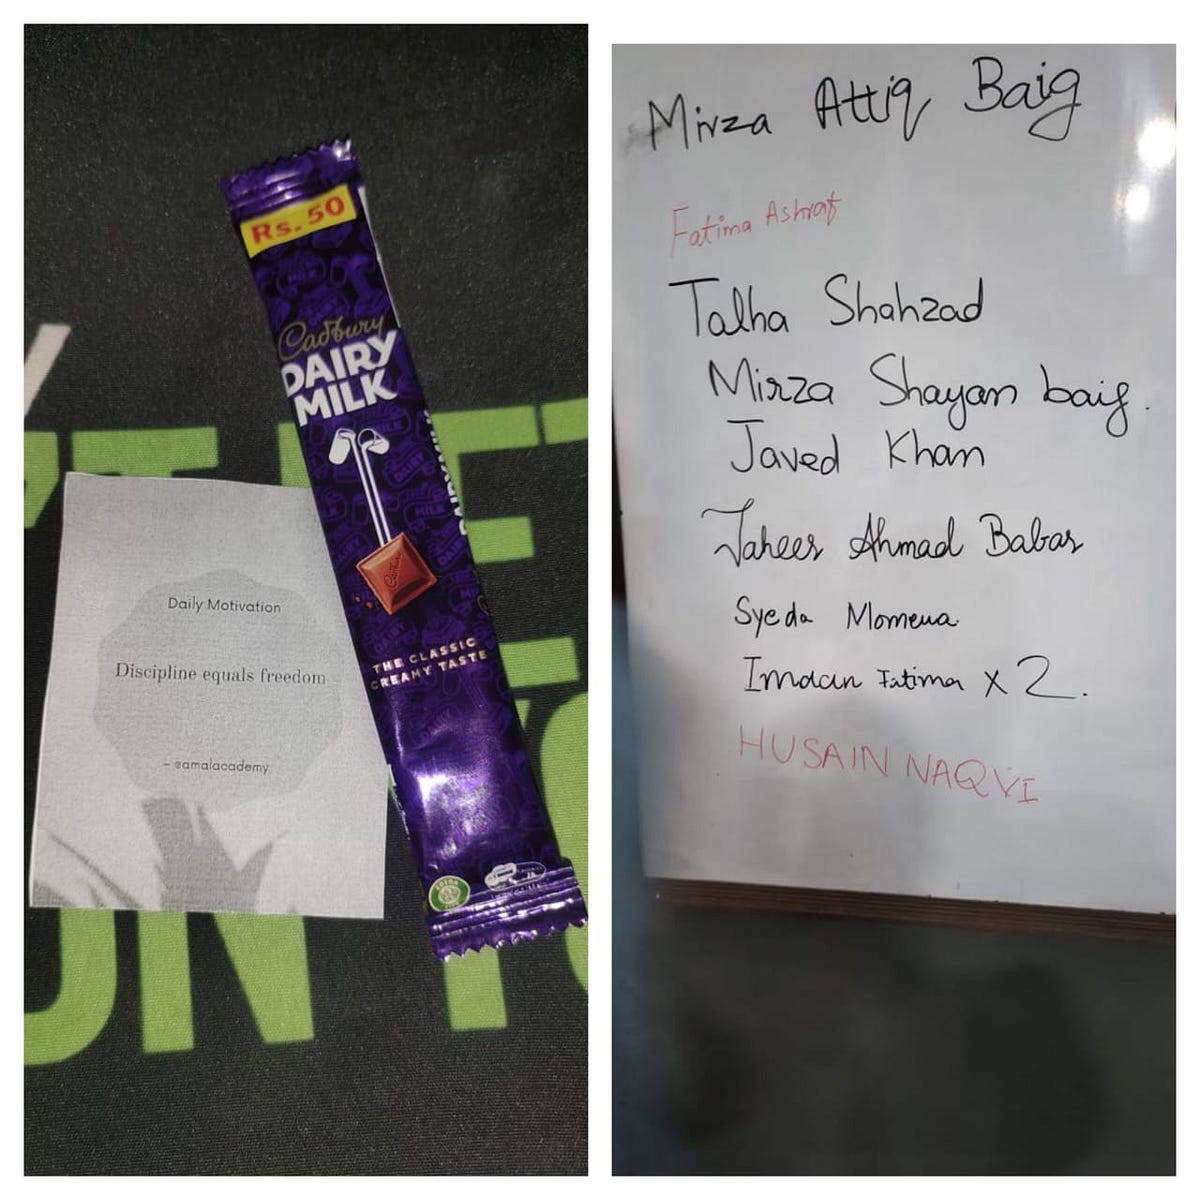 Rs. 50
Cadbury
DAIRY
MILK
Cadbury
THE CLASSIC
CREAMY TASTE
Daily Motivation
Discipline equals freedom
- @amalacademy
Mirza Attiq Baig
Fatima Ashraf
Talha Shahzad
Mirza Shayan baig.
Javed Khan
Ahmad Babar
Syeda Momena.
Imaan Fatima x 2.
HUSAIN NAQVI